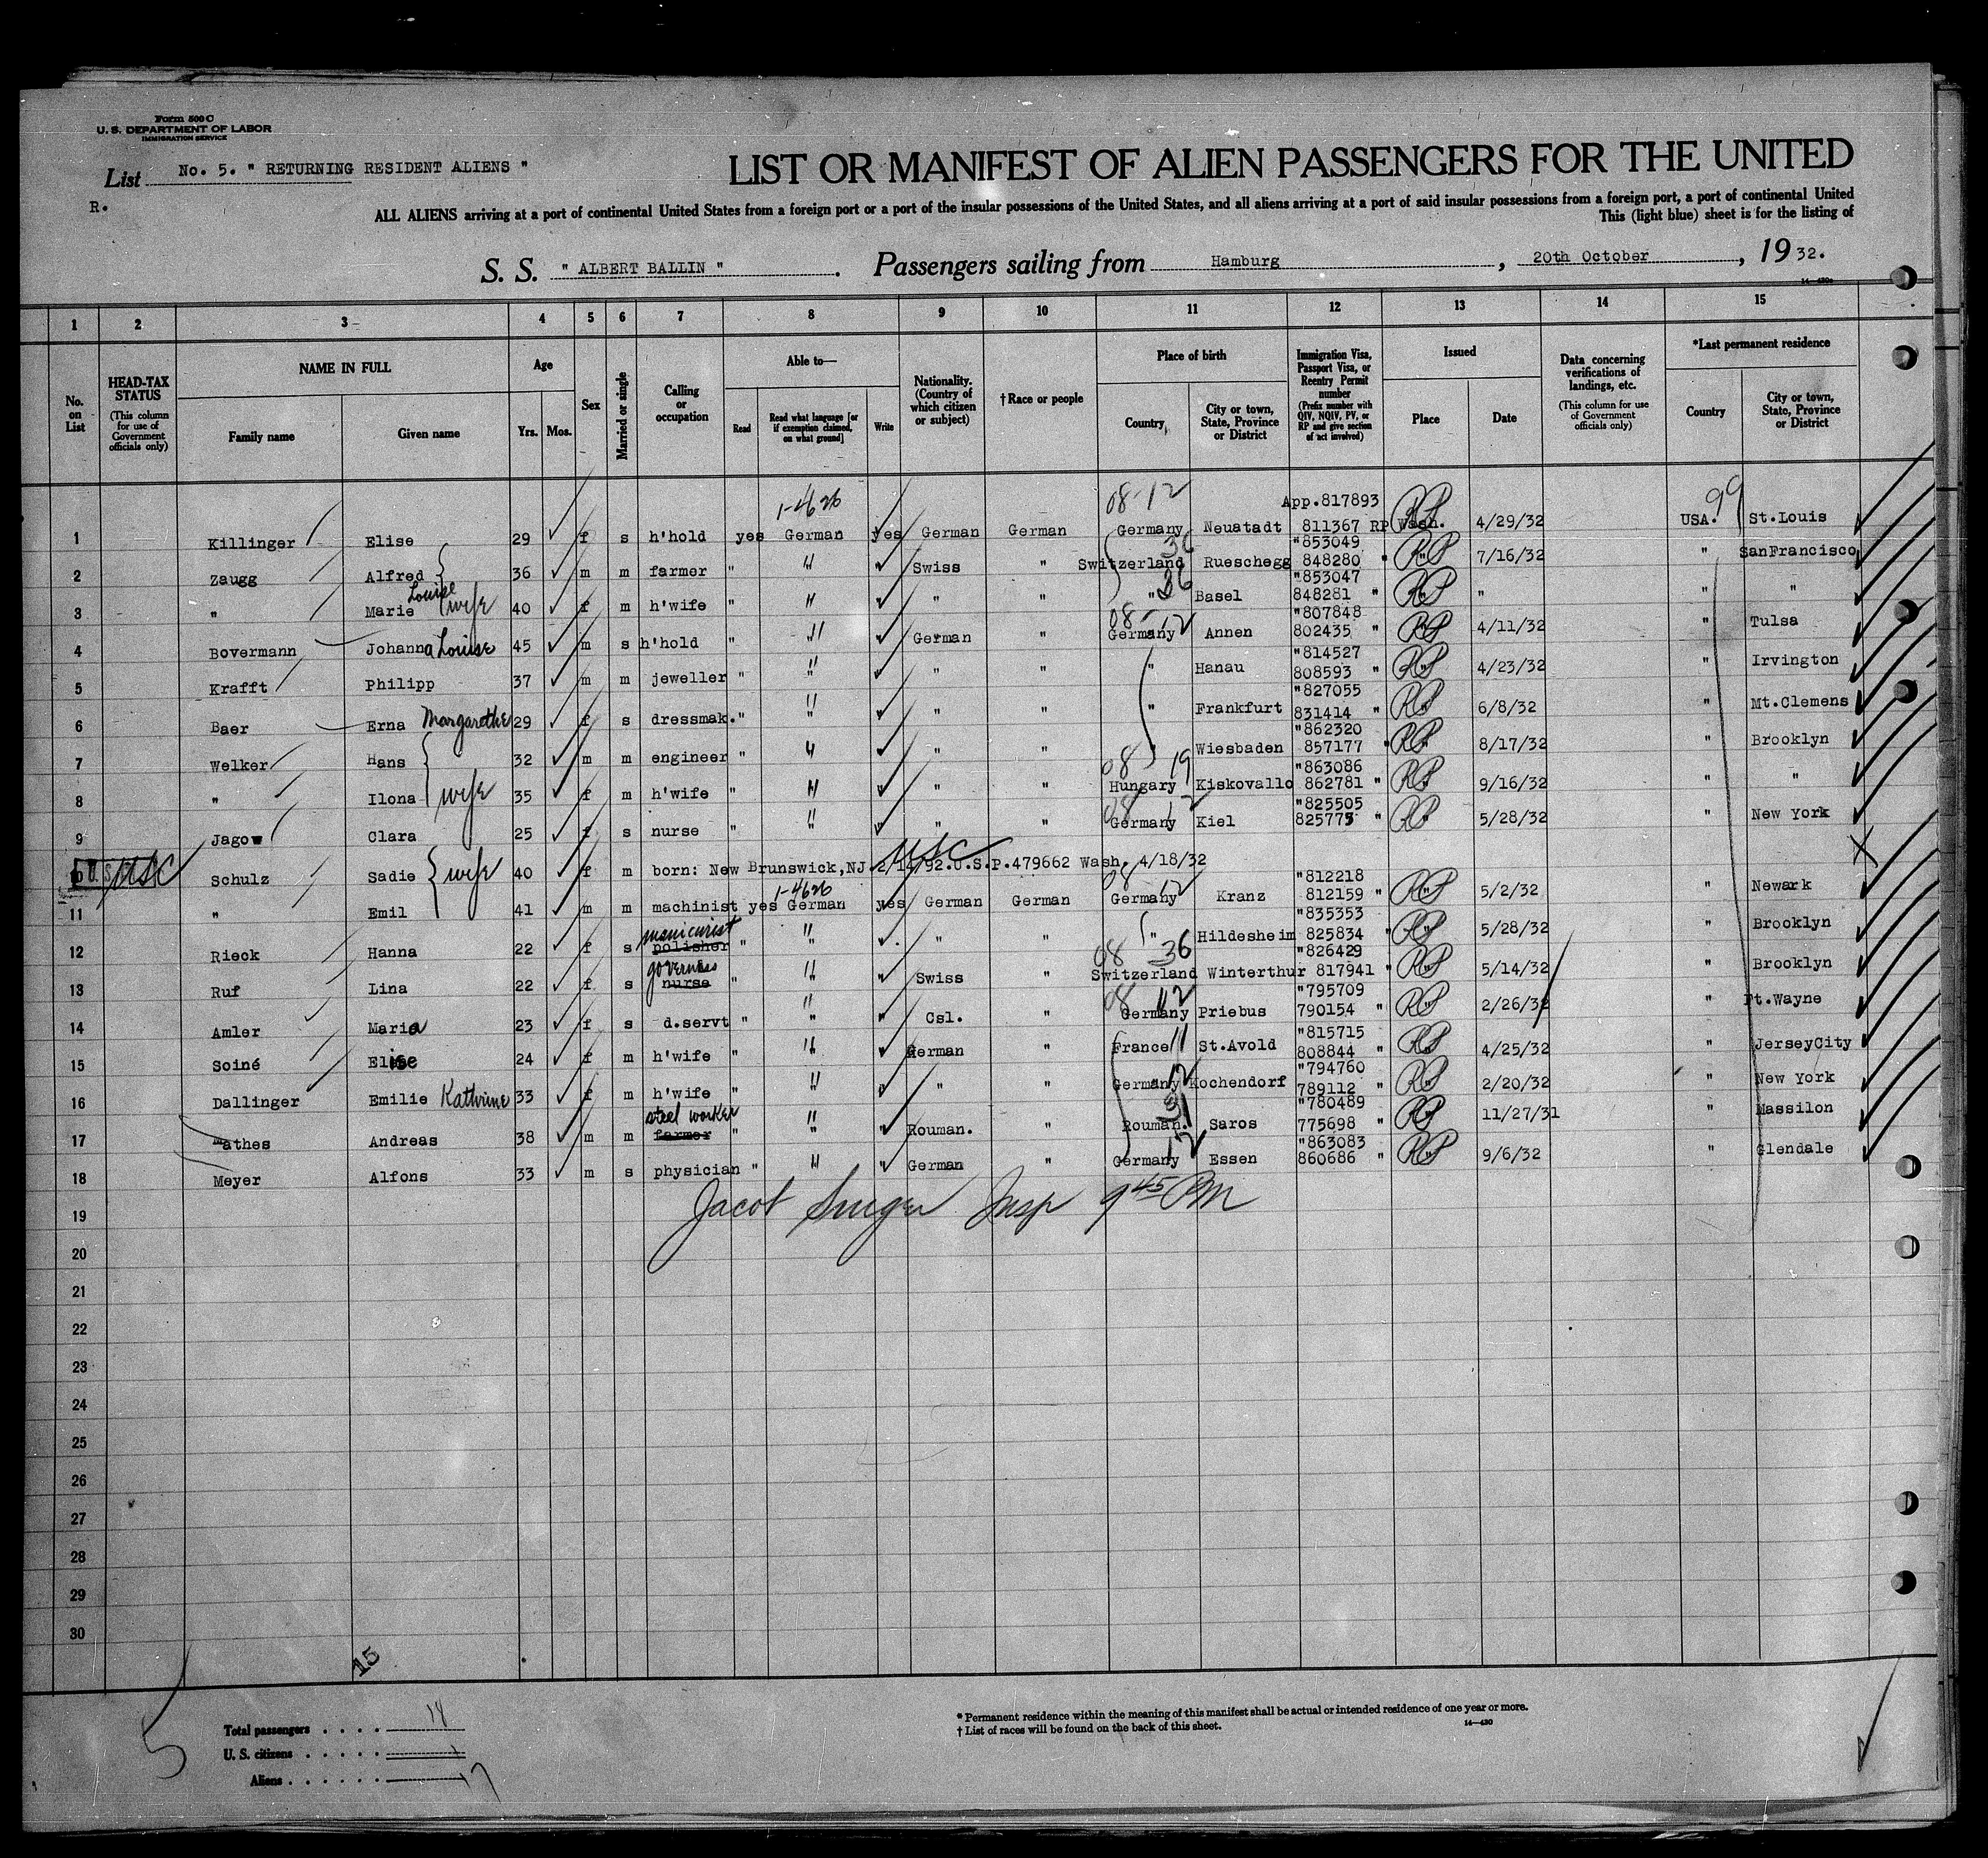 Form 500 C
U. S. DEPARTMENT OF LABOR
IMMIGRATION SERVICE
List No. 5. " RETURNING RESIDENT ALIENS "
R.
LIST OR MANIFEST OF ALIEN PASSENGERS FOR THE UNITED
ALL ALIENS arriving at a port of continental United States from a foreign port or a port of the insular possessions of the United States, and all aliens arriving at a port of said insular possessions from a foreign port, a port of continental United
This (light blue) sheet is for the listing of
S. S. " ALBERT BALLIN " . Passengers sailing from Hamburg , 20th October , 19 32.
1 2 3 4 5 6 7 8 9 10 11 12 13 14 15
No. on List
HEAD-TAX STATUS (This column for use of Government officials only)
NAME IN FULL Family name Given name
Age Yrs. Mos.
Sex
Married or single
Calling or occupation
Able to— Read Read what language [or if exemption claimed, on what ground] Write
Nationality. (Country of which citizen or subject)
† Race or people
Place of birth Country City or town, State, Province or District
Immigration Visa, Passport Visa, or Reentry Permit number (Prefix number with QIV, NQIV, PV, or RP and give section of act involved)
Issued Place Date
Data concerning verifications of landings, etc. (This column for use of Government officials only)
*Last permanent residence Country City or town, State, Province or District
1-4626 08-12 App.817893 99
1 Killinger Elise 29 f s h'hold yes German yes German German Germany Neuatadt 811367 RP Wash. 4/29/32 USA. St.Louis
36 "853049
2 Zaugg Alfred 36 m m farmer " " " Swiss " Switzerland Rueschegg 848280 " " 7/16/32 " SanFrancisco
Louise 36 "853047
3 " Marie wife 40 f m h'wife " " " " " " Basel 848281 " " " " "
08-12 "807848
4 Bovermann Johanna Louise 45 m s h'hold " " " German " Germany Annen 802435 " " 4/11/32 " Tulsa
"814527
5 Krafft Philipp 37 m m jeweller " " " " " " Hanau 808593 " " 4/23/32 " Irvington
"827055
6 Baer Erna Margarethe 29 f s dressmak. " " " " " " Frankfurt 831414 " " 6/8/32 " Mt.Clemens
"862320
7 Welker Hans 32 m m engineer " " " " " " Wiesbaden 857177 " " 8/17/32 " Brooklyn
08 19 "863086
8 " Ilona wife 35 f m h'wife " " " " " Hungary Kiskovallo 862781 " " 9/16/32 " "
08 12 "825505
9 Jagow Clara 25 f s nurse " " " " " Germany Kiel 825775 " " 5/28/32 " New York
USC
10 Schulz Sadie wife 40 f m born: New Brunswick,NJ. 2/14/92.U.S.P.479662 Wash. 4/18/32
1-4626 08 12 "812218
11 " Emil 41 m m machinist yes German yes German German Germany Kranz 812159 " " 5/2/32 " Newark
manicurist "835353
12 Rieck Hanna 22 f s polisher " " " " " " Hildesheim 825834 " " 5/28/32 " Brooklyn
governess 08 36 "826429
13 Ruf Lina 22 f s nurse " " " Swiss " Switzerland Winterthur 817941 " " 5/14/32 " Brooklyn
08 12 "795709
14 Amler Maria 23 f s d.servt " " " Csl. " Germany Priebus 790154 " " 2/26/32 " Ft.Wayne
"815715
15 Soiné Elise 24 f m h'wife " " " German " France 11 St.Avold 808844 " " 4/25/32 " JerseyCity
12 "794760
16 Dallinger Emilie Kathrine 33 f m h'wife " " " " " Germany Kochendorf 789112 " " 2/20/32 " New York
steel worker 31 "780489
17 Mathes Andreas 38 m m farmer " " " Rouman. " Rouman. Saros 775698 " " 11/27/31 " Massilon
12 "863083
18 Meyer Alfons 33 m s physician " " " German " Germany Essen 860686 " " 9/6/32 " Glendale
Jacob Singer Insp 9 45 PM
19
20
21
22
23
24
25
26
27
28
29
30
15
5
Total passengers . . . . 18
U. S. citizens . . . . . 1
Aliens . . . . . . 17
* Permanent residence within the meaning of this manifest shall be actual or intended residence of one year or more.
† List of races will be found on the back of this sheet.
14—430